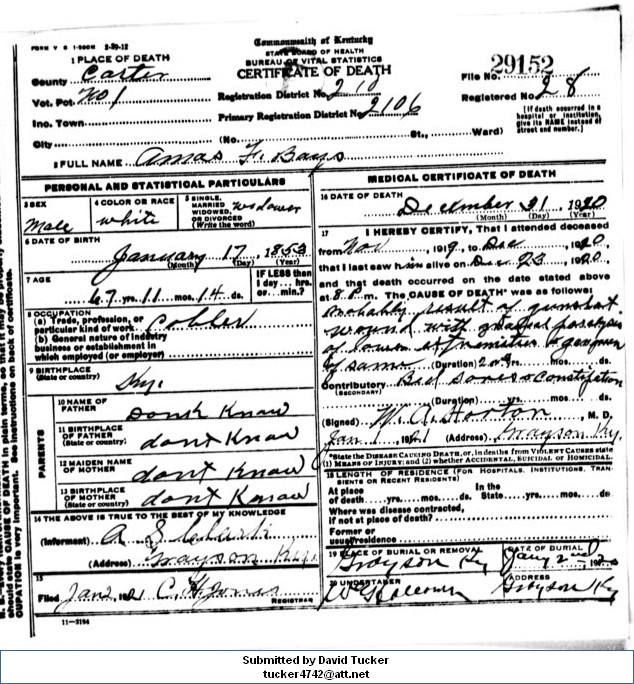 FORM V S 1-500M 2-29-12
Commonwealth of Kentucky
STATE BOARD OF HEALTH
BUREAU OF VITAL STATISTICS
CERTIFICATE OF DEATH
1 PLACE OF DEATH
County Carter
Vot. Pct. No 1
Ino. Town
City
Registration District No. 210
Primary Registration District No. 2106
(No. St., Ward)
File No. 29152
Registered No. 28
[If death occurred in a hospital or institution, give its NAME instead of street and number.]
2 FULL NAME Amas F. Bays
PERSONAL AND STATISTICAL PARTICULARS
3 SEX Male
4 COLOR OR RACE white
5 SINGLE, MARRIED WIDOWED, OR DIVORCED (Write the word) widower
6 DATE OF BIRTH
January 17, 1853
(Month) (Day) (Year)
7 AGE
67 yrs. 11 mos. 14 ds.
IF LESS than 1 day... hrs. or... min.?
8 OCCUPATION
(a) Trade, profession, or particular kind of work Cobler
(b) General nature of industry business or establishment in which employed (or employer)
9 BIRTHPLACE (State or country) Ky.
PARENTS
10 NAME OF FATHER Don't Know
11 BIRTHPLACE OF FATHER (State or country) dont Know
12 MAIDEN NAME OF MOTHER dont Know
13 BIRTHPLACE OF MOTHER (State or country) dont Know
14 THE ABOVE IS TRUE TO THE BEST OF MY KNOWLEDGE
(Informant) A S
(Address) Grayson Ky.
15
Filed Jan 2, 1921 C. H. Jones
REGISTRAR
11-3184
MEDICAL CERTIFICATE OF DEATH
16 DATE OF DEATH
December 31, 1920
(Month) (Day) (Year)
17 I HEREBY CERTIFY, That I attended deceased
from Nov 1919, to Dec 1920,
that I last saw him alive on Dec 23, 1920,
and that death occurred on the date stated above
at 8 P.m. The CAUSE OF DEATH* was as follows:
Probably result of gunshot
wound with gradual paralysis
of lower extremities
of same (Duration) yrs. mos. ds.
Contributory Bed sores & Constipation
(SECONDARY)
(Duration) yrs. mos. ds.
(Signed) W. A. Horton, M. D.
Jan 1 1921 (Address) Grayson Ky.
*State the DISEASE CAUSING DEATH, or, in deaths from VIOLENT CAUSES state (1) MEANS OF INJURY; and (2) whether ACCIDENTAL, SUICIDAL or HOMICIDAL.
18 LENGTH OF RESIDENCE (FOR HOSPITALS, INSTITUTIONS, TRANSIENTS OR RECENT RESIDENTS)
At place of death yrs. mos. ds. In the State yrs. mos. ds.
Where was disease contracted, if not at place of death?
Former or usual residence
19 PLACE OF BURIAL OR REMOVAL Grayson Ky
DATE OF BURIAL Jany 2nd
20 UNDERTAKER
ADDRESS Grayson Ky
Submitted by David Tucker
tucker4742@att.net